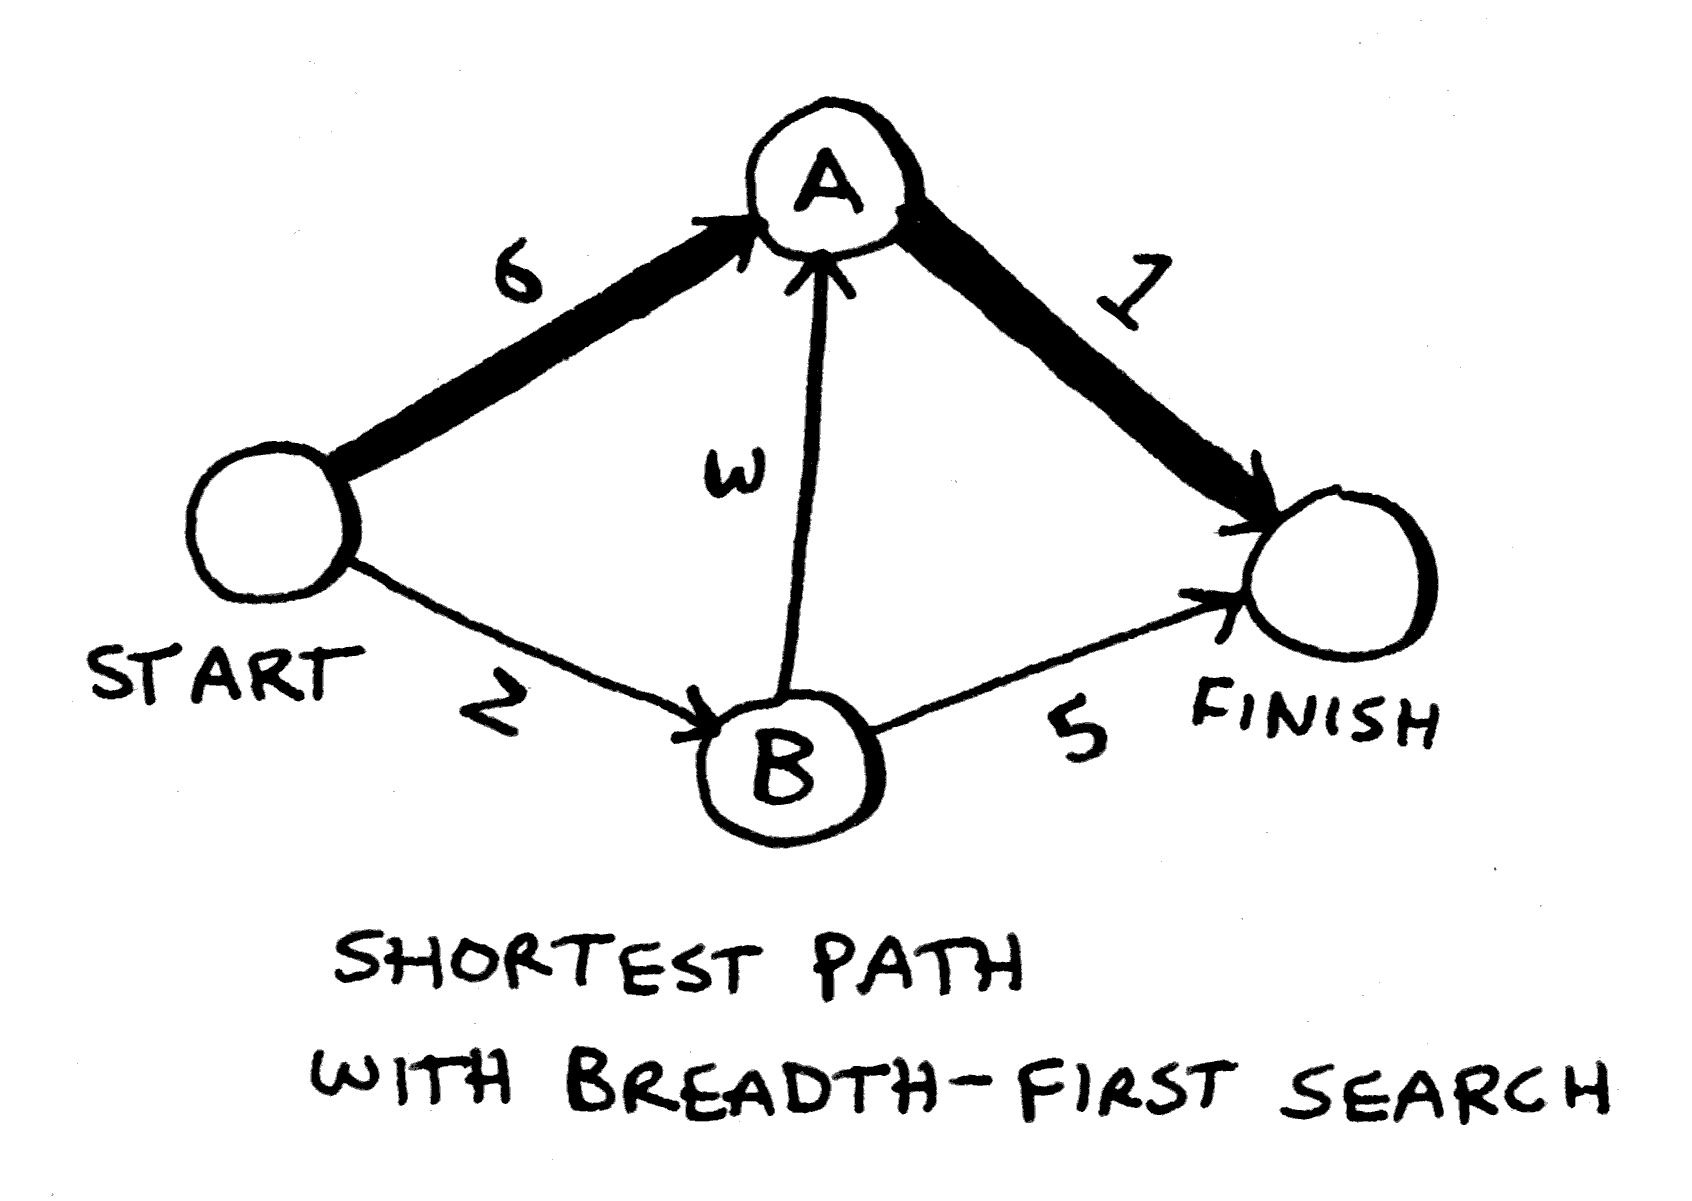 A
6
1
3
START
FINISH
2
5
B
SHORTEST PATH
WITH BREADTH-FIRST SEARCH